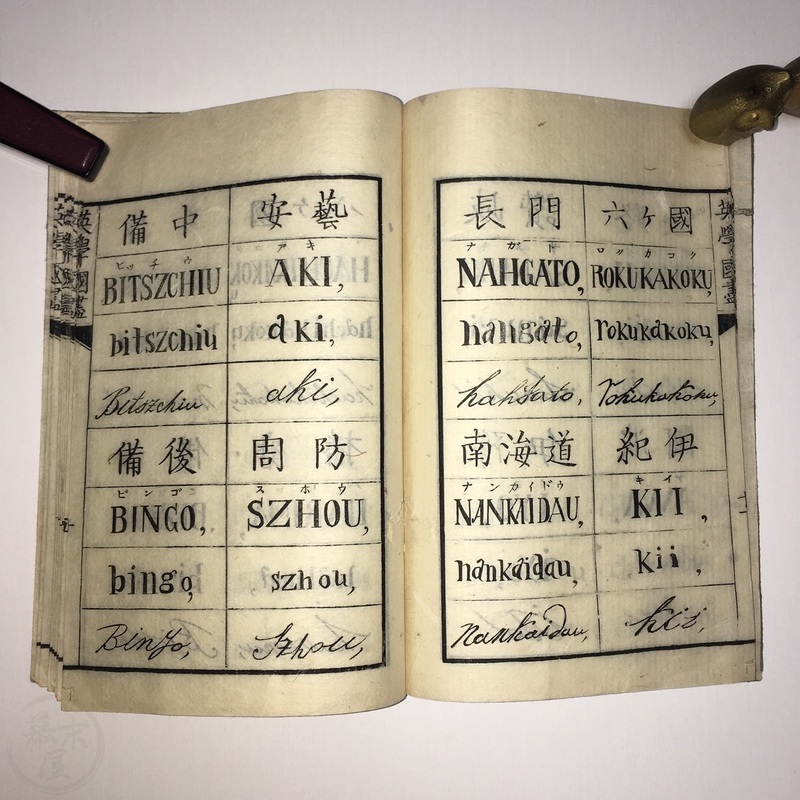 備中
ビッチウ
BITSZCHIU
bitszchiu
Bitszchiu
備後
ビンゴ
BINGO,
bingo,
Bingo,
安藝
アキ
AKI,
aki,
aki,
周防
スホウ
SZHOU,
szhou,
Szhou,
長門
ナガト
NAHGATO,
nahgato,
nahgato,
南海道
ナンカイドウ
NANKAIDAU,
nankaidau,
Nankaidau,
六ヶ國
ロッカコク
ROKUKAKOKU,
rokukakoku,
rokukakoku,
紀伊
キイ
KII,
kii,
kii,